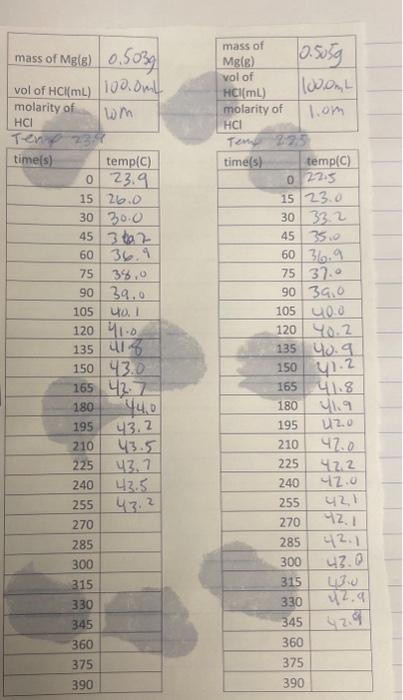 mass of Mg(g) 0.503g
vol of HCl(mL) 100.0mL
molarity of
HCl
Temp 23.9
time(s) temp(C)
0 23.9
15 26.0
30 30.0
45
60 36.9
75 38.0
90 39.0
105 40.1
120 41.0
135 41.8
150 43.0
165 42.7
180 44.0
195 43.2
210 43.5
225 43.7
240 43.5
255 43.2
270
285
300
315
330
345
360
375
390
mass of
Mg(g) 0.505g
vol of
HCl(mL) 100.0mL
molarity of 1.0m
HCl
Temp 22.5
time(s) temp(C)
0 22.5
15 23.0
30 33.2
45 35.0
60 36.9
75 37.0
90 39.0
105 40.0
120 40.2
135 40.9
150 41.2
165 41.8
180 41.9
195 42.0
210 42.0
225 42.2
240 42.0
255 42.1
270 42.1
285 42.1
300 43.0
315 43.0
330 42.9
345 42.9
360
375
390